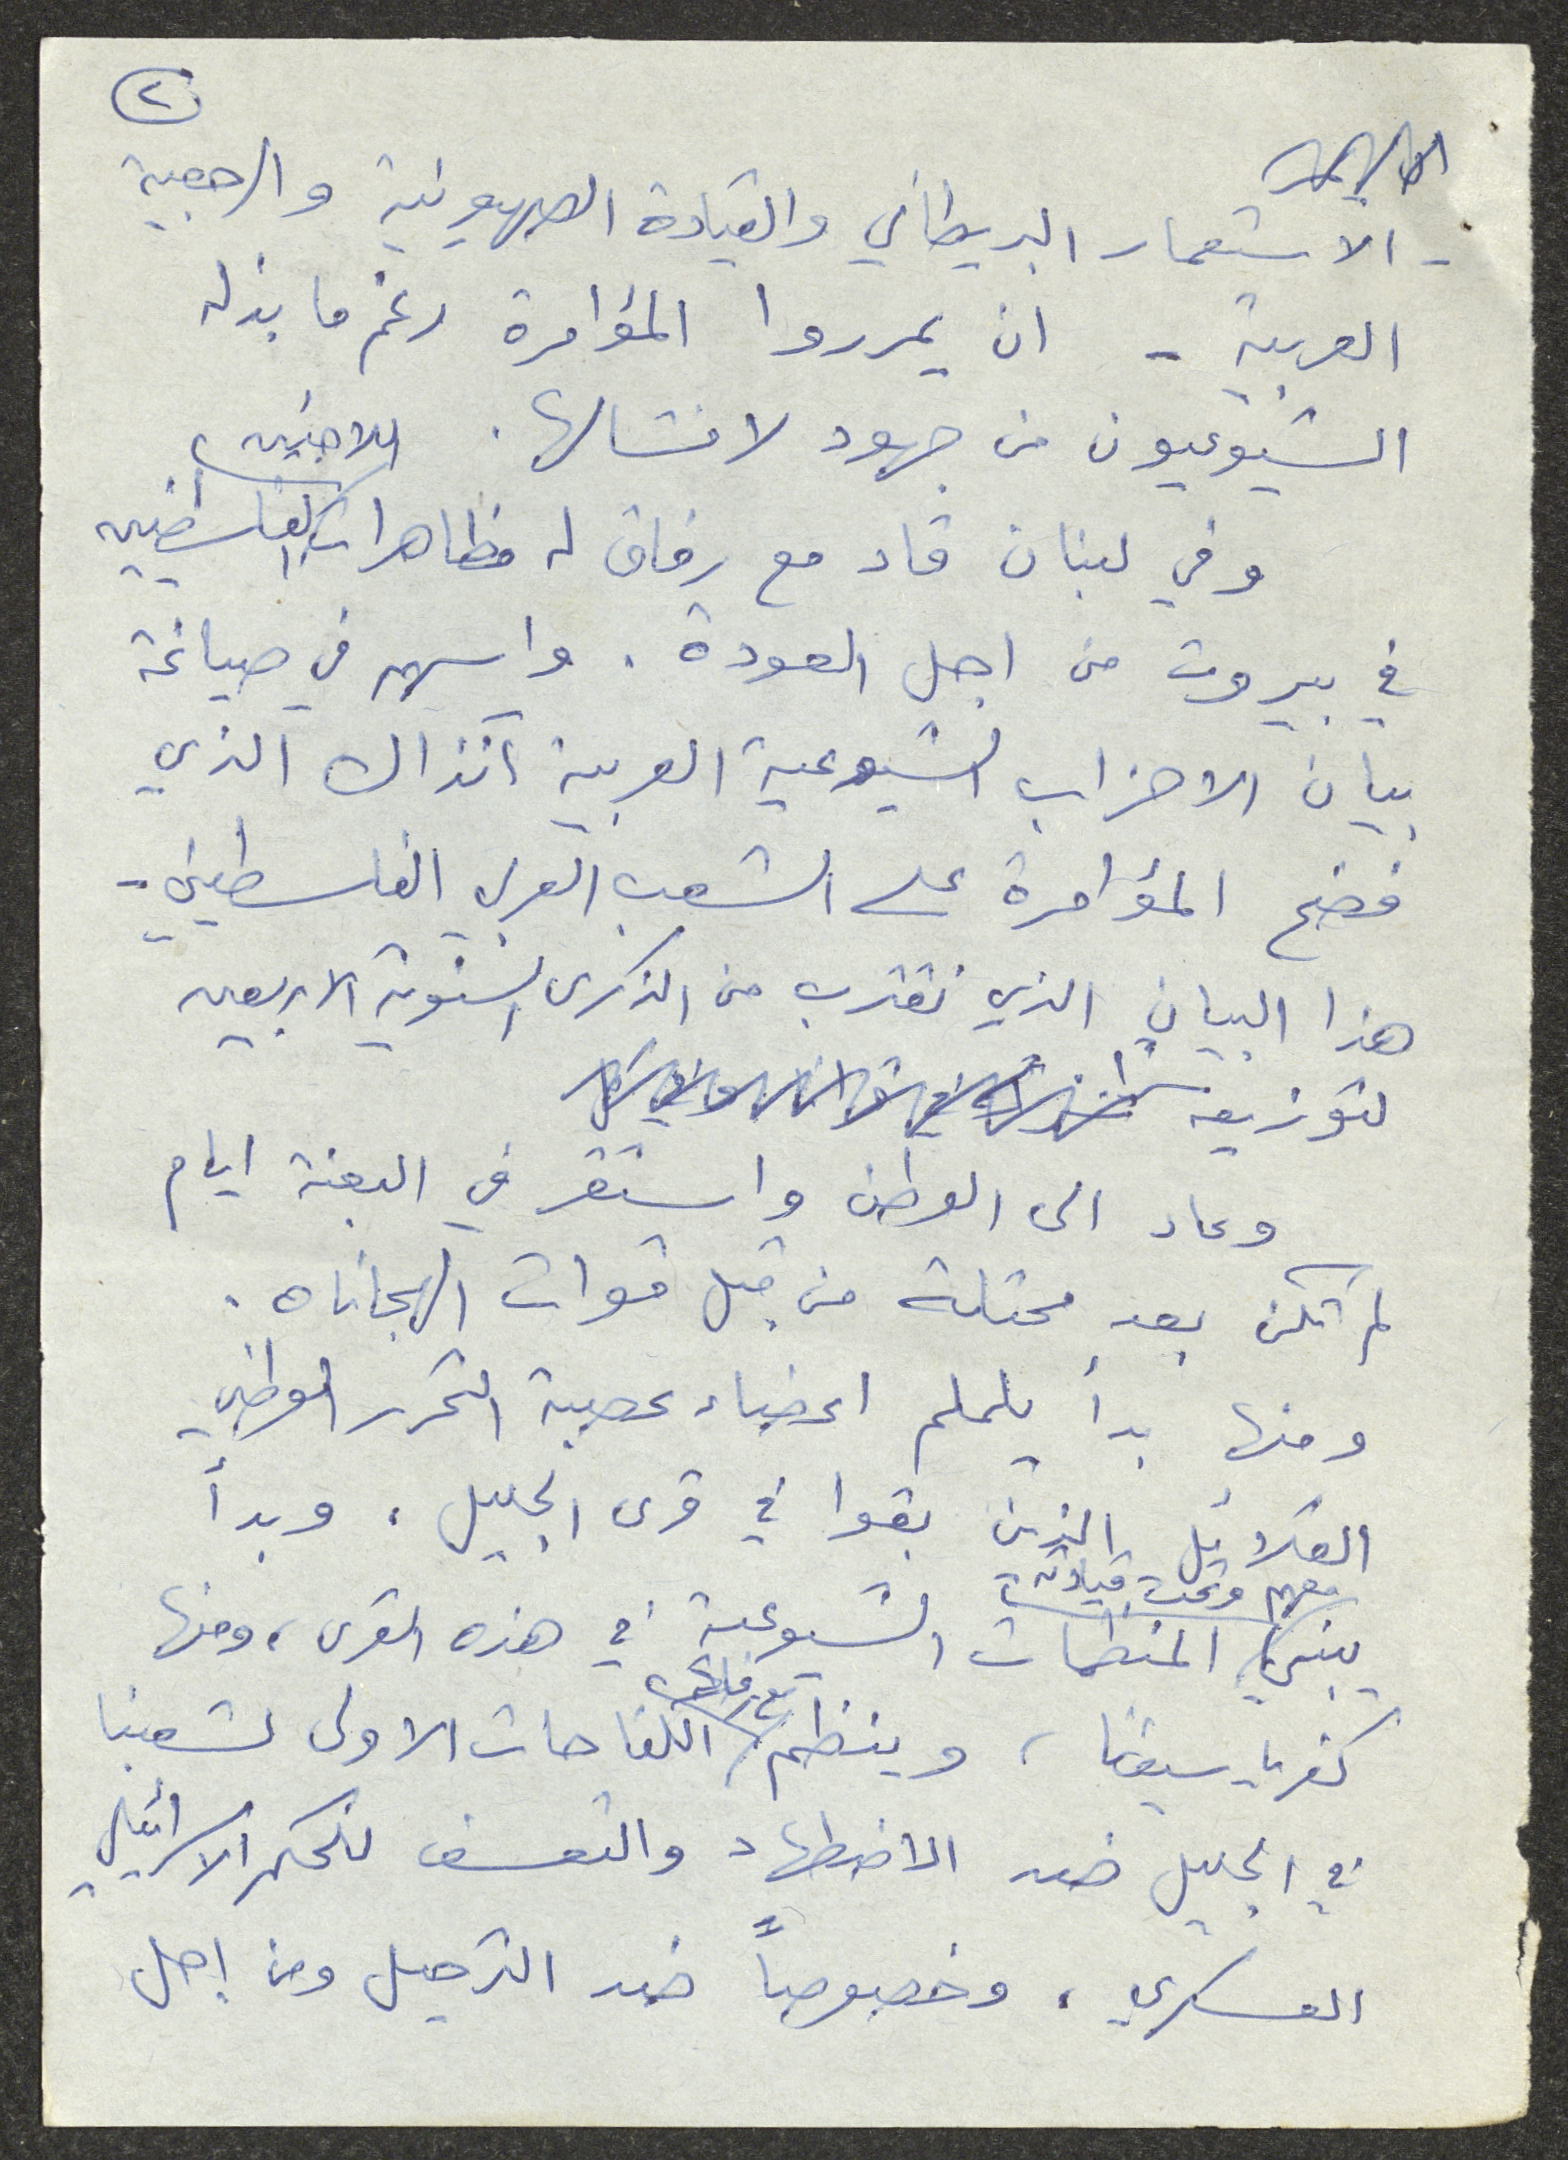 ٢
- الاستعمار البريطاني والقيادة الصهيونية والرجعية
العربية - ان يمرروا المؤامرة رغم ما بذله
الشيوعيون من جهود لافشالها.
اللاجئين
وفي لبنان قاد مع رفاق له مظاهرات الفلسطينيين
في بيروت من اجل العودة. واسهم في صياغة
بيان الاحزاب الشيوعية العربية آنذاك الذي
فضح المؤامرة على الشعب العربي الفلسطيني -
هذا البيان الذي نقترب من الذكرى السنوية الاربعين
لتوزيعه
وعاد الى الوطن واستقر في البعنة ايام
لم تكن بعد محتلة من قبل قوات الهجاناه.
ومنها بدأ يلملم اعضاء عصبة التحرر الوطني
القلائل الذين بقوا في قرى الجليل، وبدأ
معهم وتحت قيادته
يبني المنظمات الشيوعية في هذه القرى، ومنها
مع رفاقه
كفرياسيف، وينظم الكفاحات الاولى لشعبنا
في الجليل ضد الاضطهاد والتعسف للحكم الاسرائيلي
العسكري، وخصوصاً ضد الترحيل ومن اجل